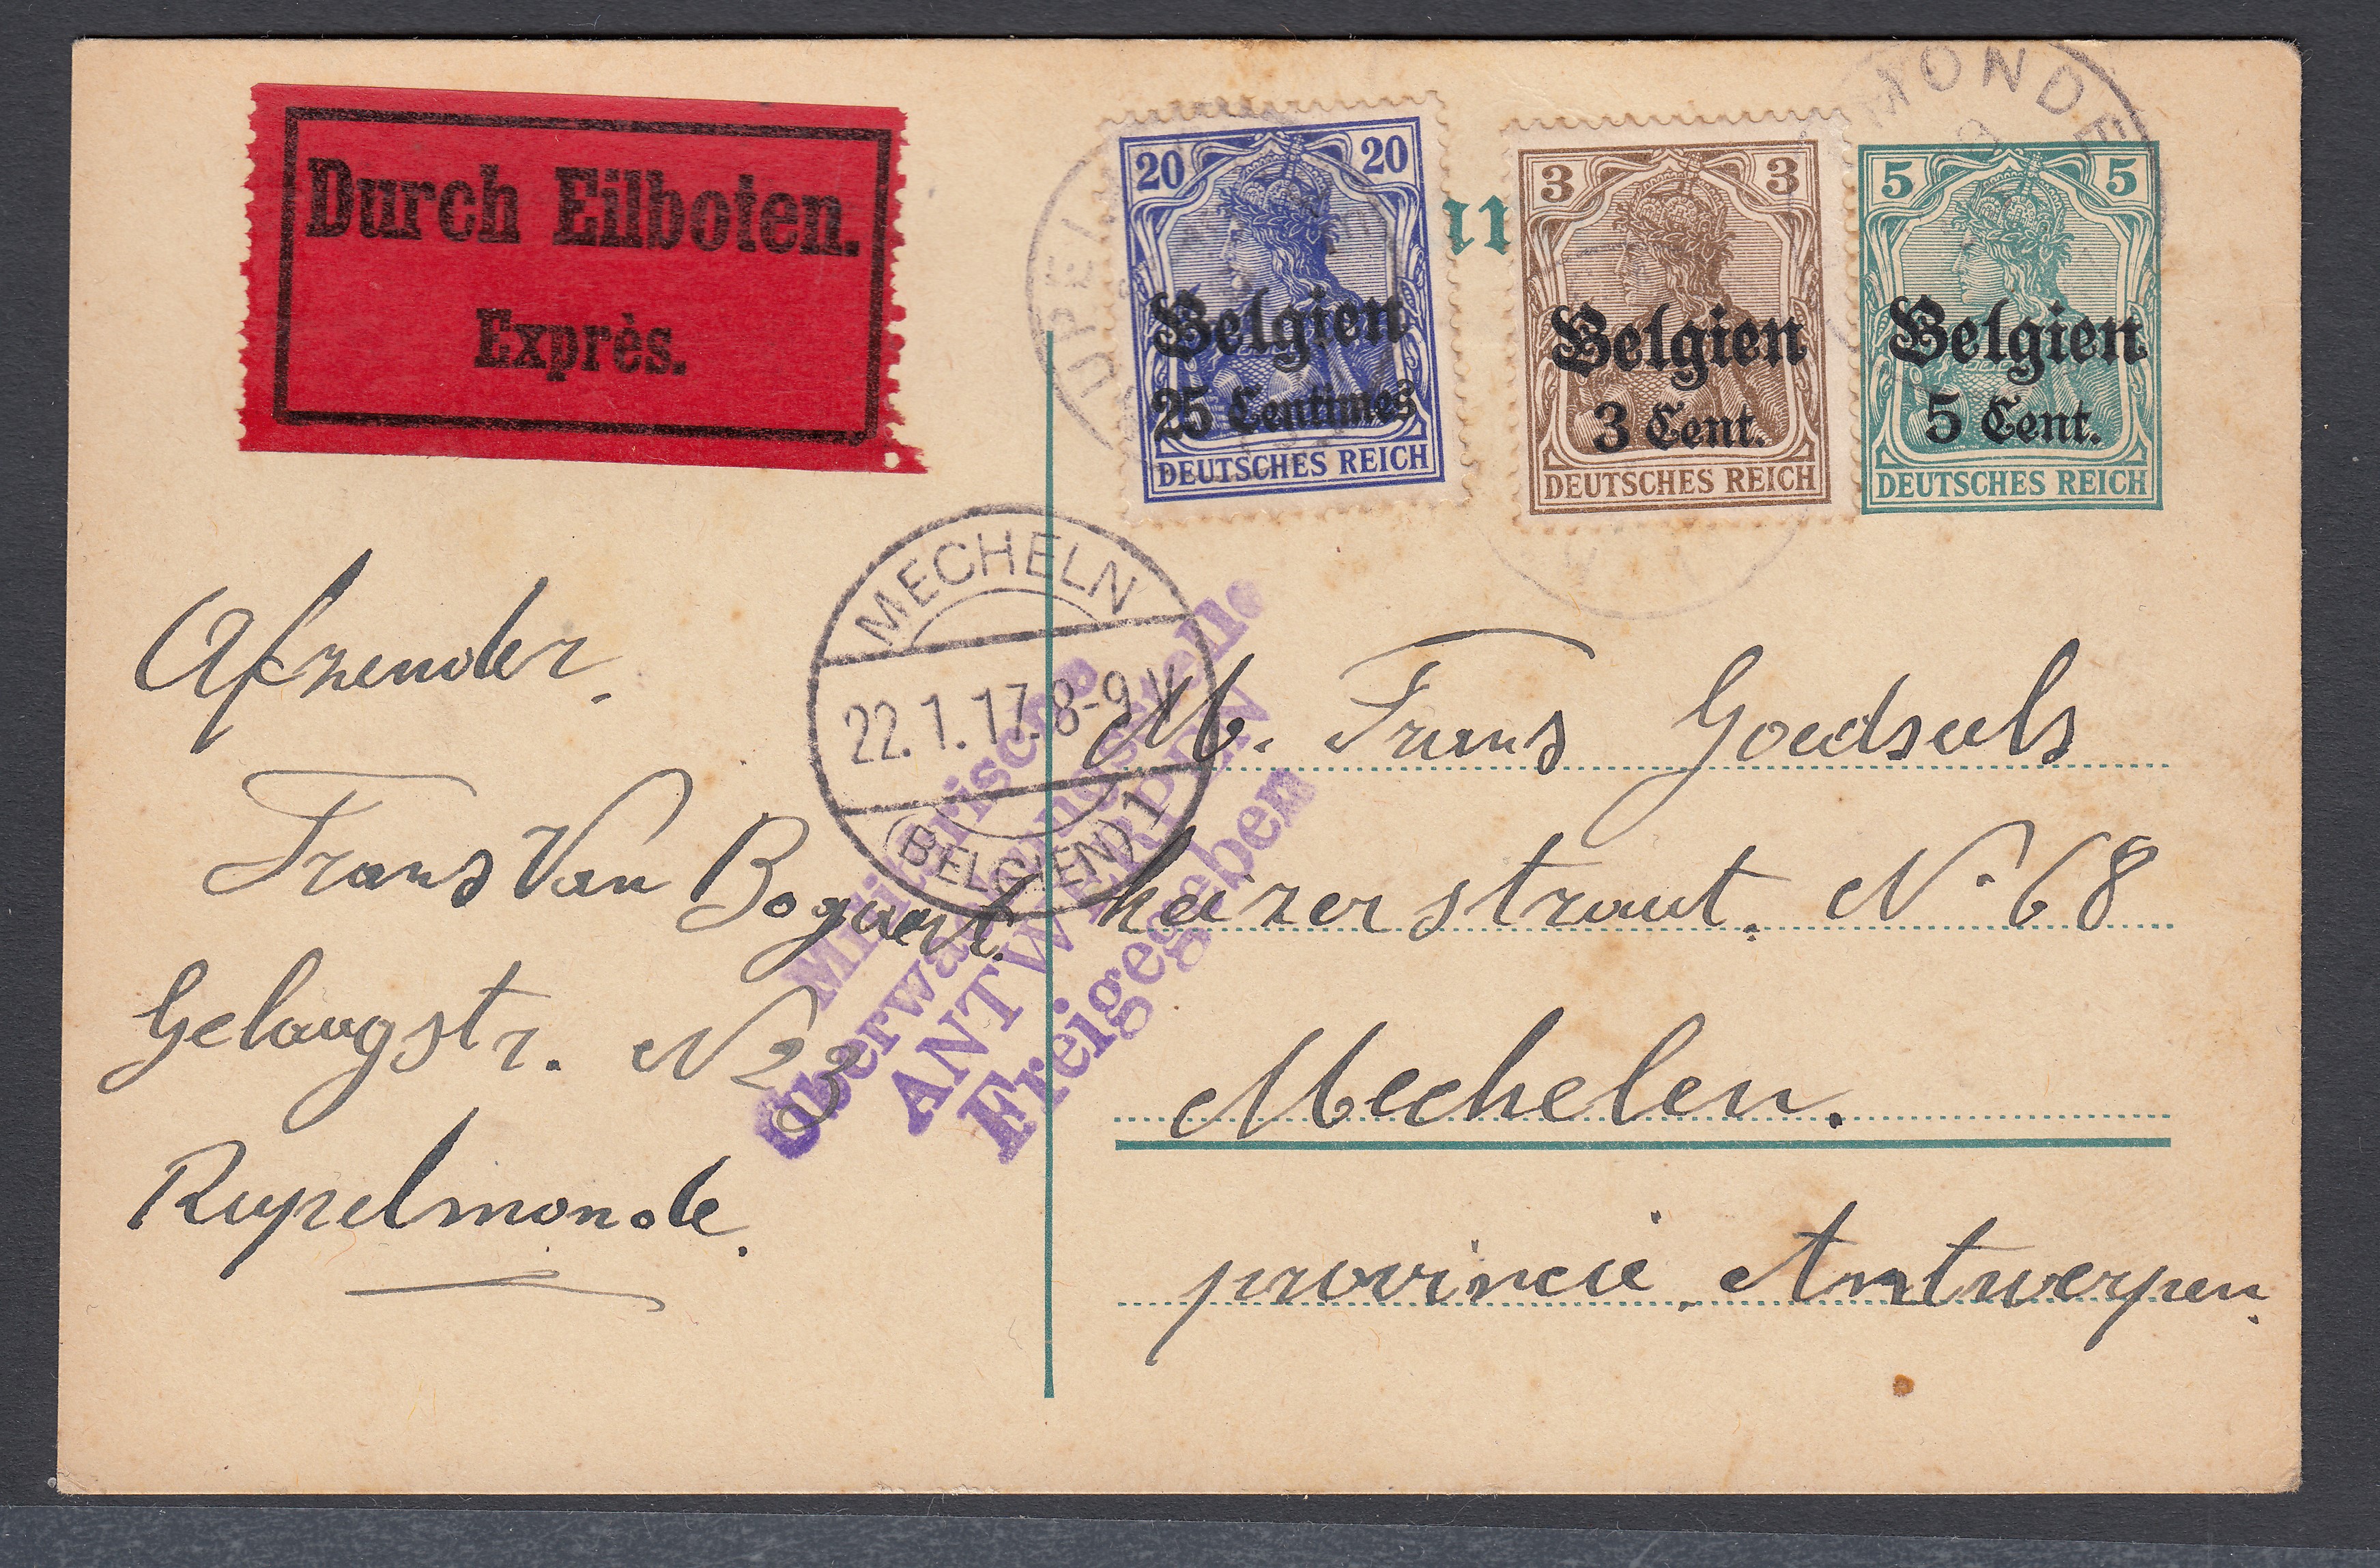 Durch Eilboten.
Exprès.
20 20
Belgien
25 Centimes
DEUTSCHES REICH
3 3
Belgien
3 Cent.
DEUTSCHES REICH
5 5
Belgien
5 Cent.
DEUTSCHES REICH
MECHELN
22.1.17.8-9V
(BELGIEN) 1
Militärische
Überwachungsstelle
ANTWERPEN
Freigegeben
Afzender.
Frans Van Bogaert.
Gelaagstr. N 23
Rupelmonde.
M. Frans Goedseels
keizerstraat. N. 68
Mechelen.
provincie. Antwerpen.